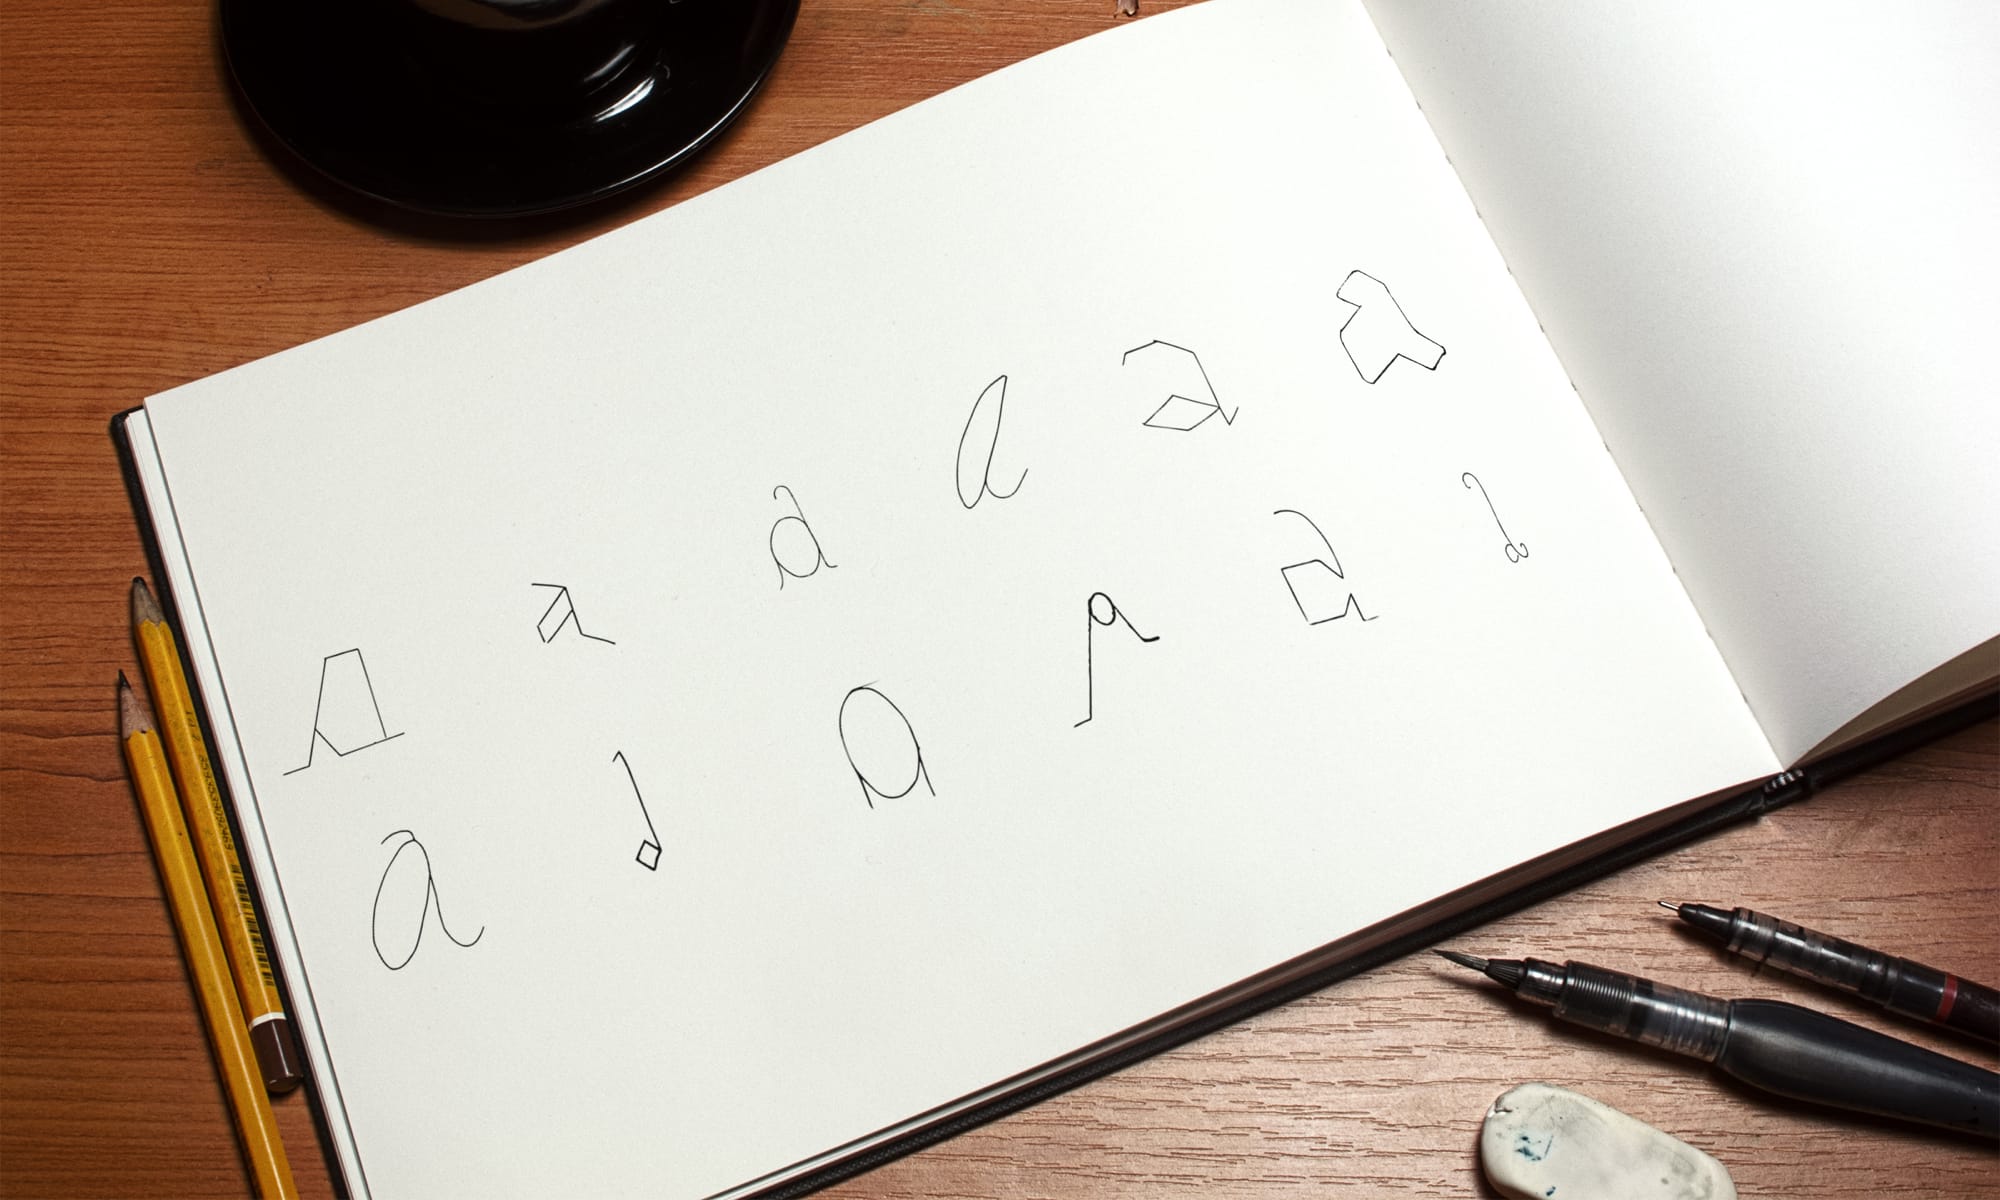 a a a a a a
a a a a a a